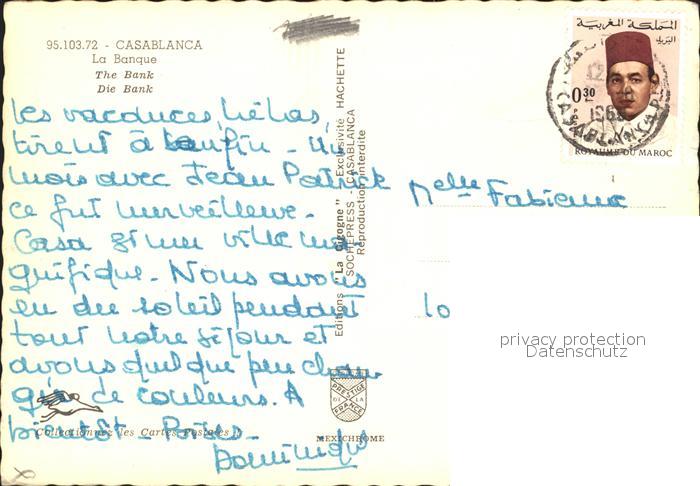 95.103.72 - CASABLANCA
La Banque
The Bank
Die Bank
Les vacances, hélas,
tirent à leur fin - Un
mois avec Jean Patrick
ce fut merveilleux.
Casa est une ville ma
gnifique. Nous avons
eu du soleil pendant
tout notre séjour et
avons quelque peu chan
gé de couleurs. A
bientôt - Bises -
Dominique
Collectionnez les Cartes Postales
Editions "La Cigogne" - Exclusivité HACHETTE
SOCHEPRESS - CASABLANCA
Reproduction interdite
PRESTIGE
DE LA
FRANCE
MEXICHROME
المملكة المغربية
البريد
0,30
ROYAUME DU MAROC
CASABLANCA
Melle Fabienne
lo
privacy protection
Datenschutz